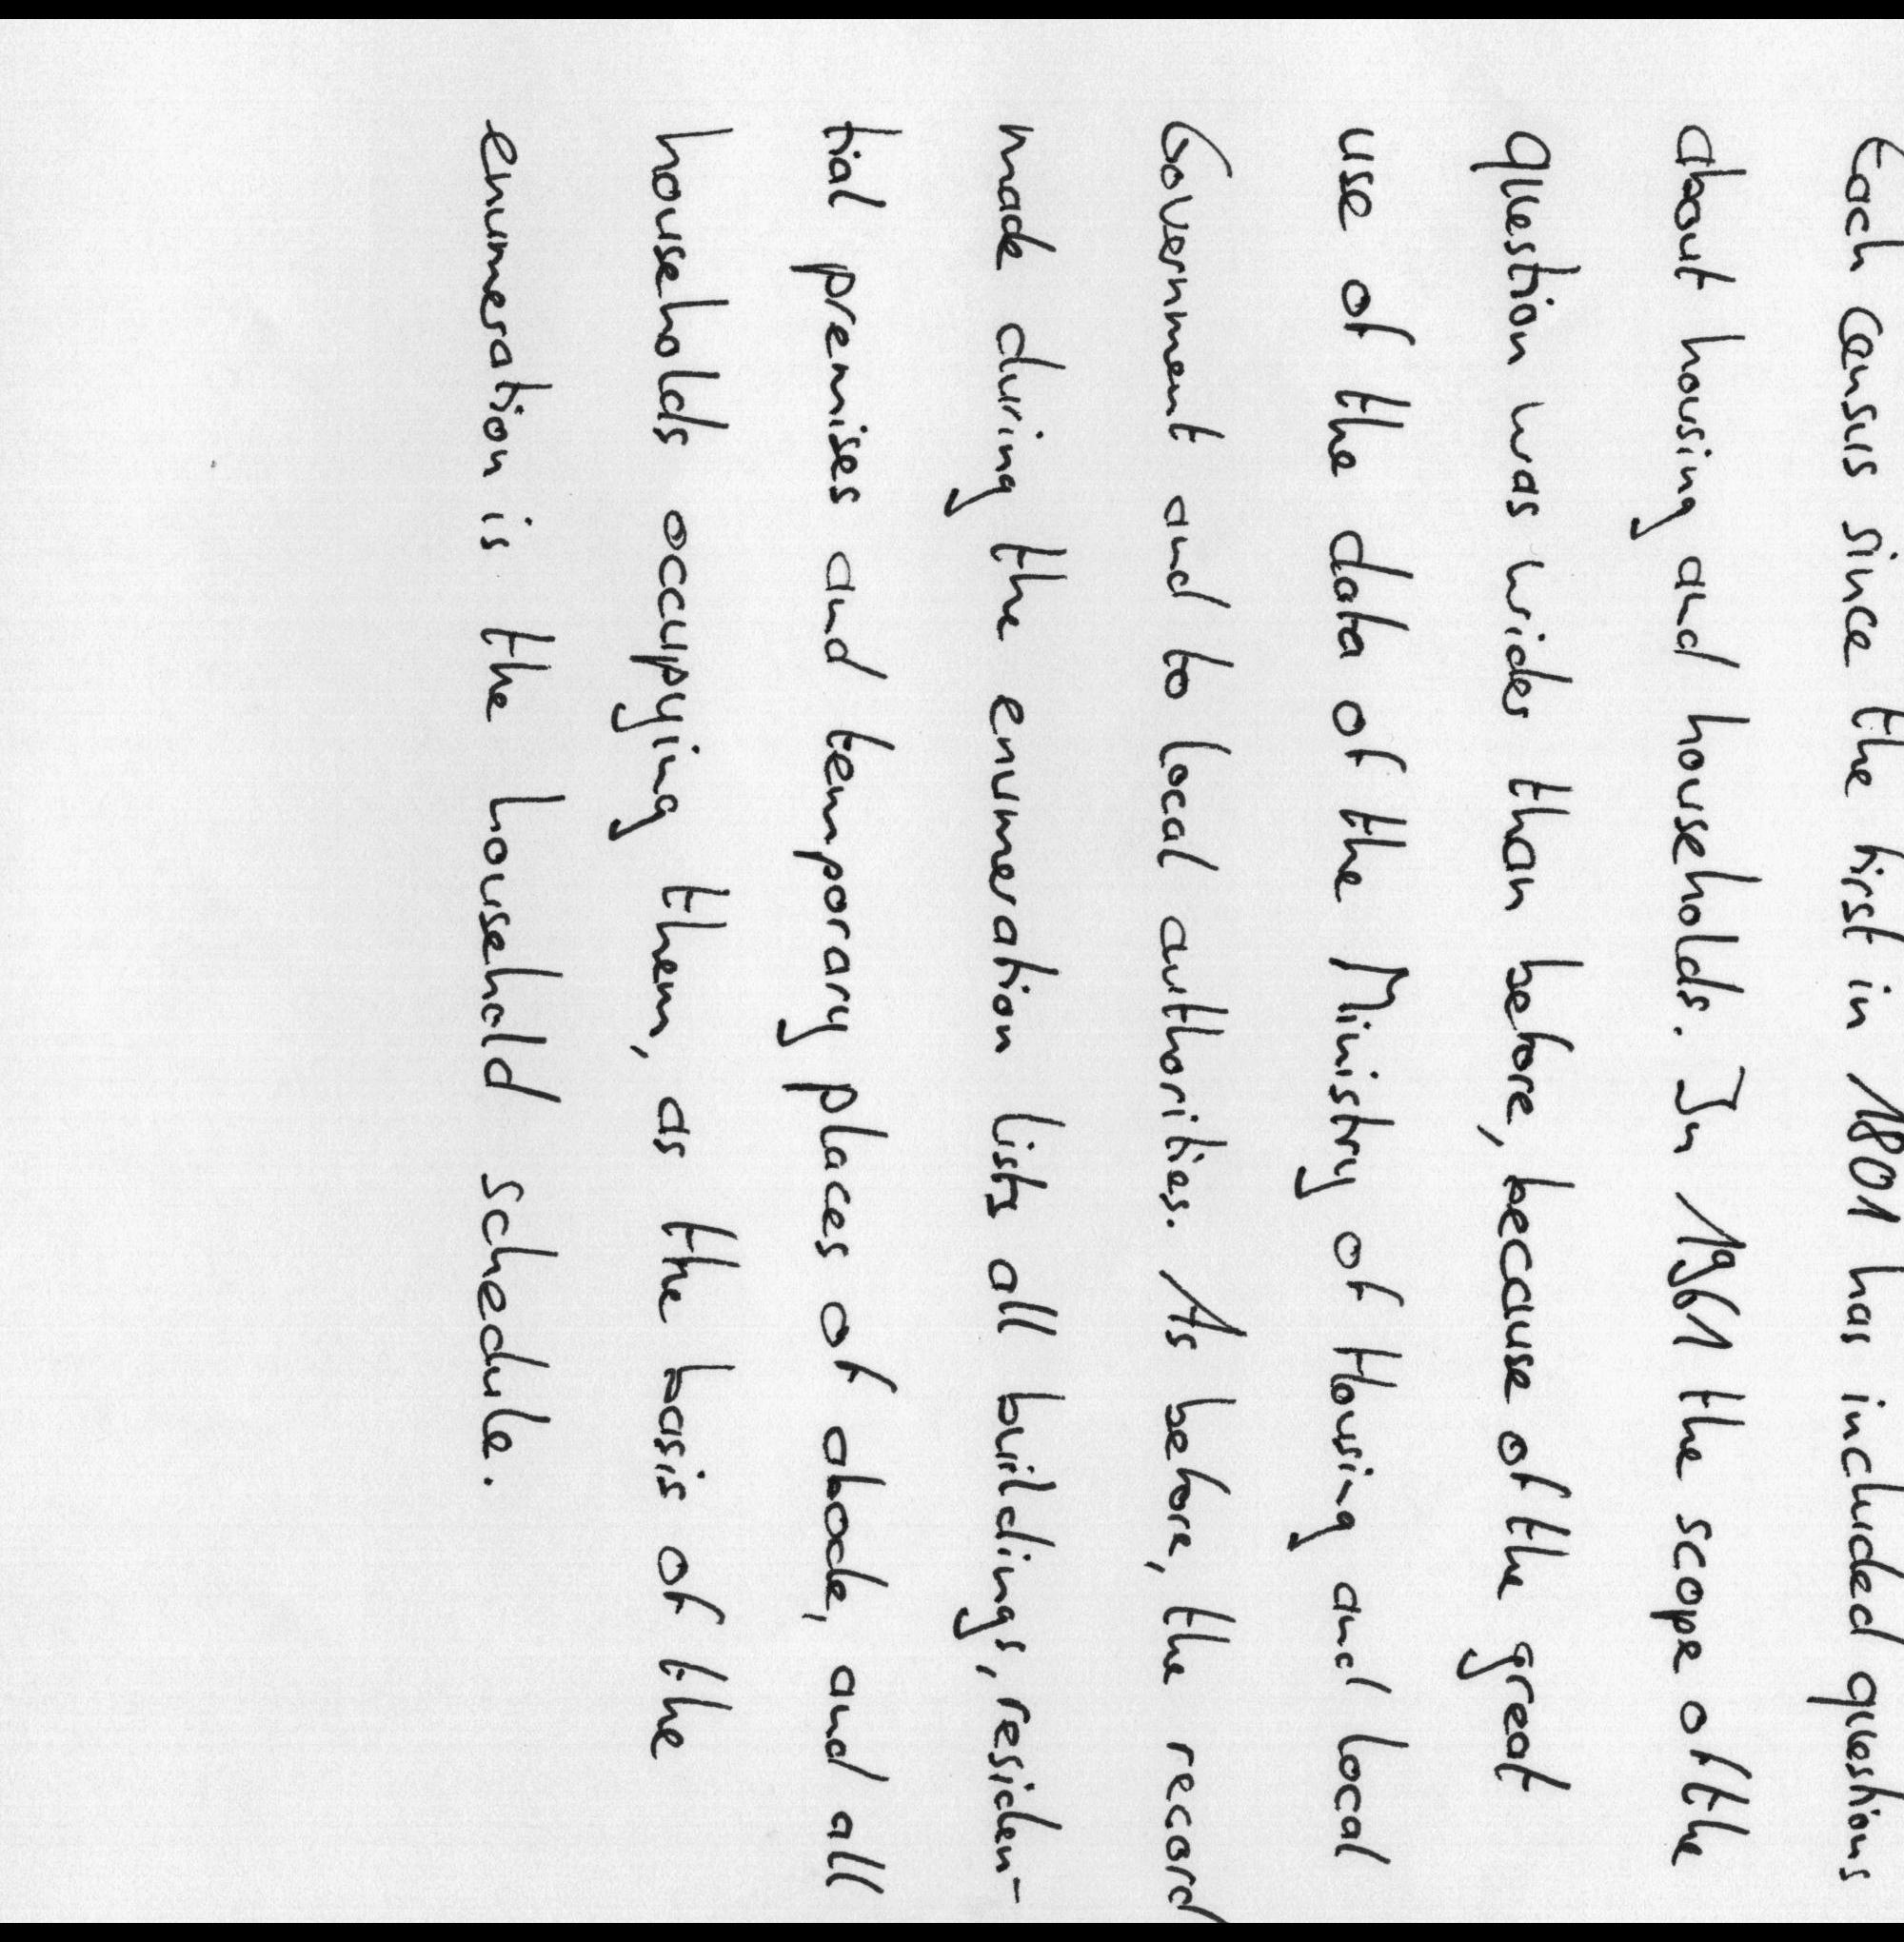 Each census since the first in 1801 has included questions
about housing and households. In 1961 the scope of the
question was wider than before, because of the great
use of the data of the Ministry of Housing and Local
Government and to local authorities. As before, the record
made during the enumeration lists all buildings, residen-
tial premises and temporary places of abode, and all
households occupying them, as the basis of the
enumeration is the household schedule.